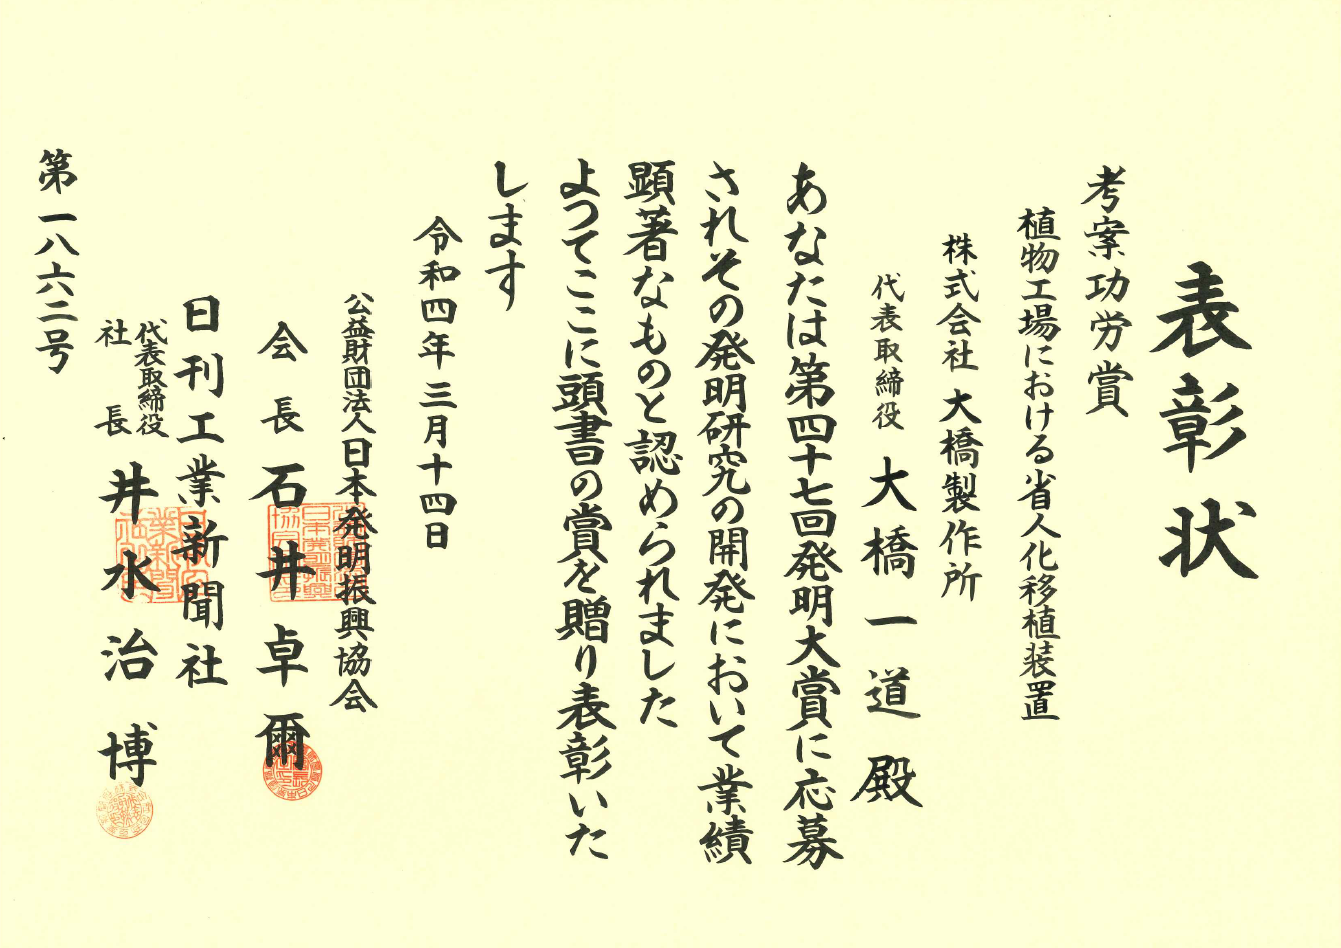 表彰状
考案功労賞
植物工場における省人化移植装置
株式会社 大橋製作所
代表取締役 大橋一道 殿
あなたは第四十七回発明大賞に応募
されその発明研究の開発において業績
顕著なものと認められました
よつてここに頭書の賞を贈り表彰いた
します
令和四年三月十四日
公益財団法人日本発明振興協会
会長 石井卓爾
日刊工業新聞社
代表取締役
社長 井水治博
第一八六二号